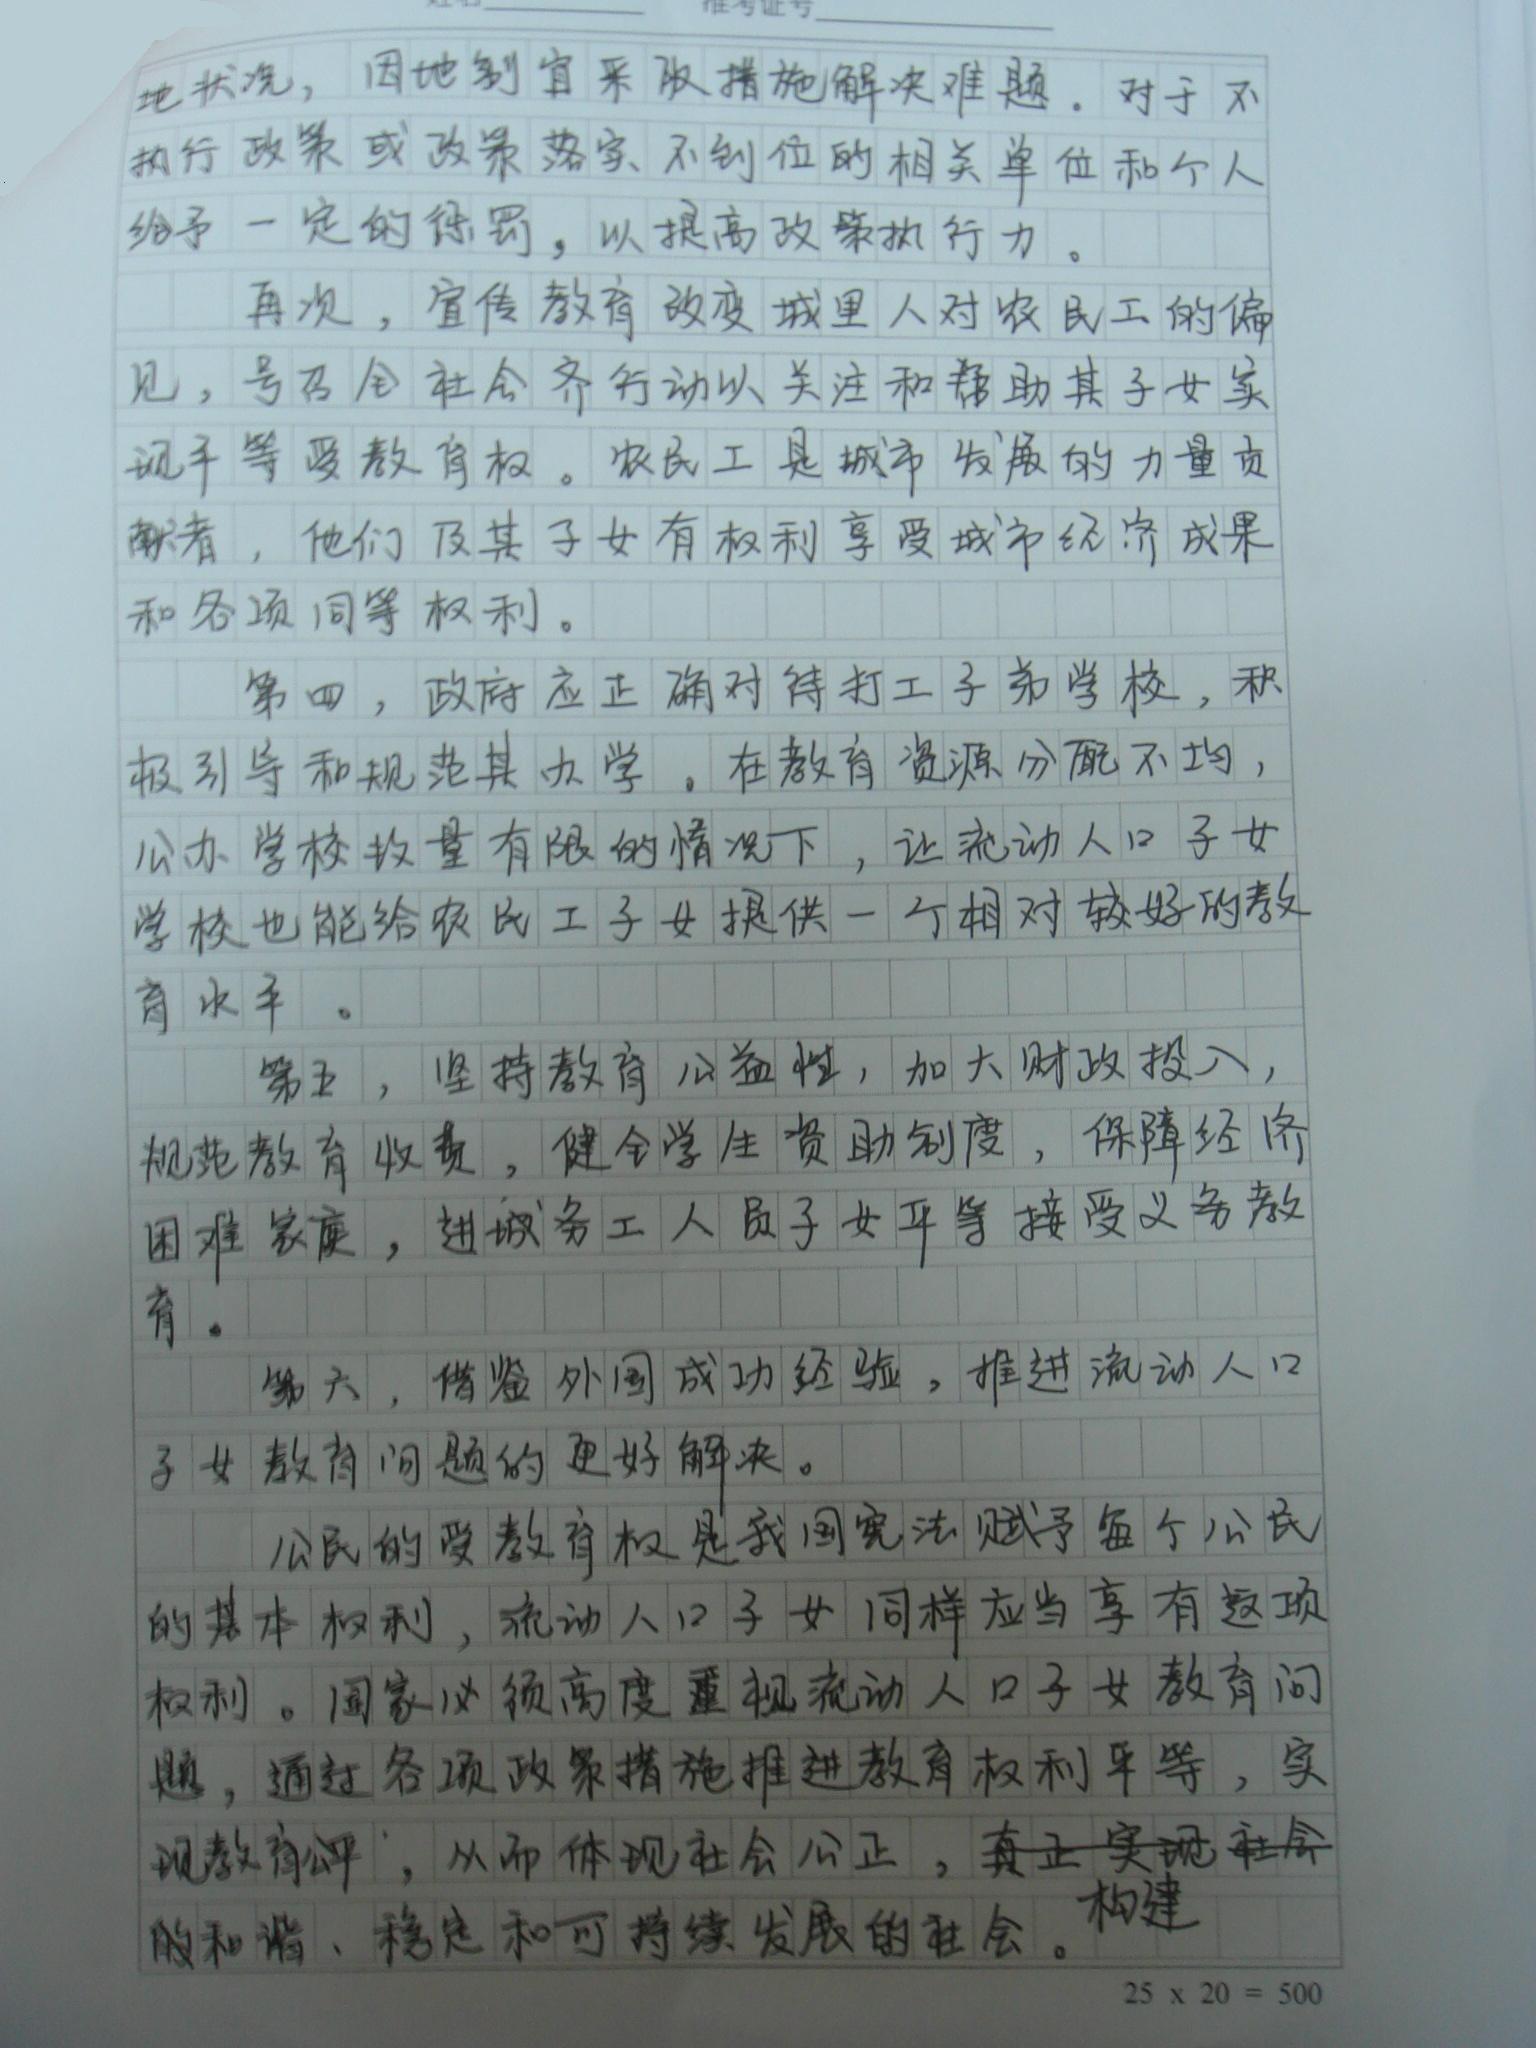 姓名 准考证号
地状况，因地制宜采取措施解决难题．对于不
执行政策或政策落实不到位的相关单位和个人
给予一定的惩罚，以提高政策执行力。
再次，宣传教育改变城里人对农民工的偏
见，号召全社会齐行动以关注和帮助其子女实
现平等受教育权。农民工是城市发展的力量贡
献者，他们及其子女有权利享受城市经济成果
和各项同等权利。
第四，政府应正确对待打工子弟学校，积
极引导和规范其办学。在教育资源分配不均，
公办学校数量有限的情况下，让流动人口子女
学校也能给农民工子女提供一个相对较好的教
育水平。
第五，坚持教育公益性，加大财政投入，
规范教育收费，健全学生资助制度，保障经济
困难家庭，进城务工人员子女平等接受义务教
育。
第六，借鉴外国成功经验，推进流动人口
子女教育问题的更好解决。
公民的受教育权是我国宪法赋予每个公民
的基本权利，流动人口子女同样应当享有这项
权利。国家必须高度重视流动人口子女教育问
题，通过各项政策措施推进教育权利平等，实
现教育公平，从而体现社会公正，真正实现社会
构建
的和谐、稳定和可持续发展的社会。
25 x 20 = 500